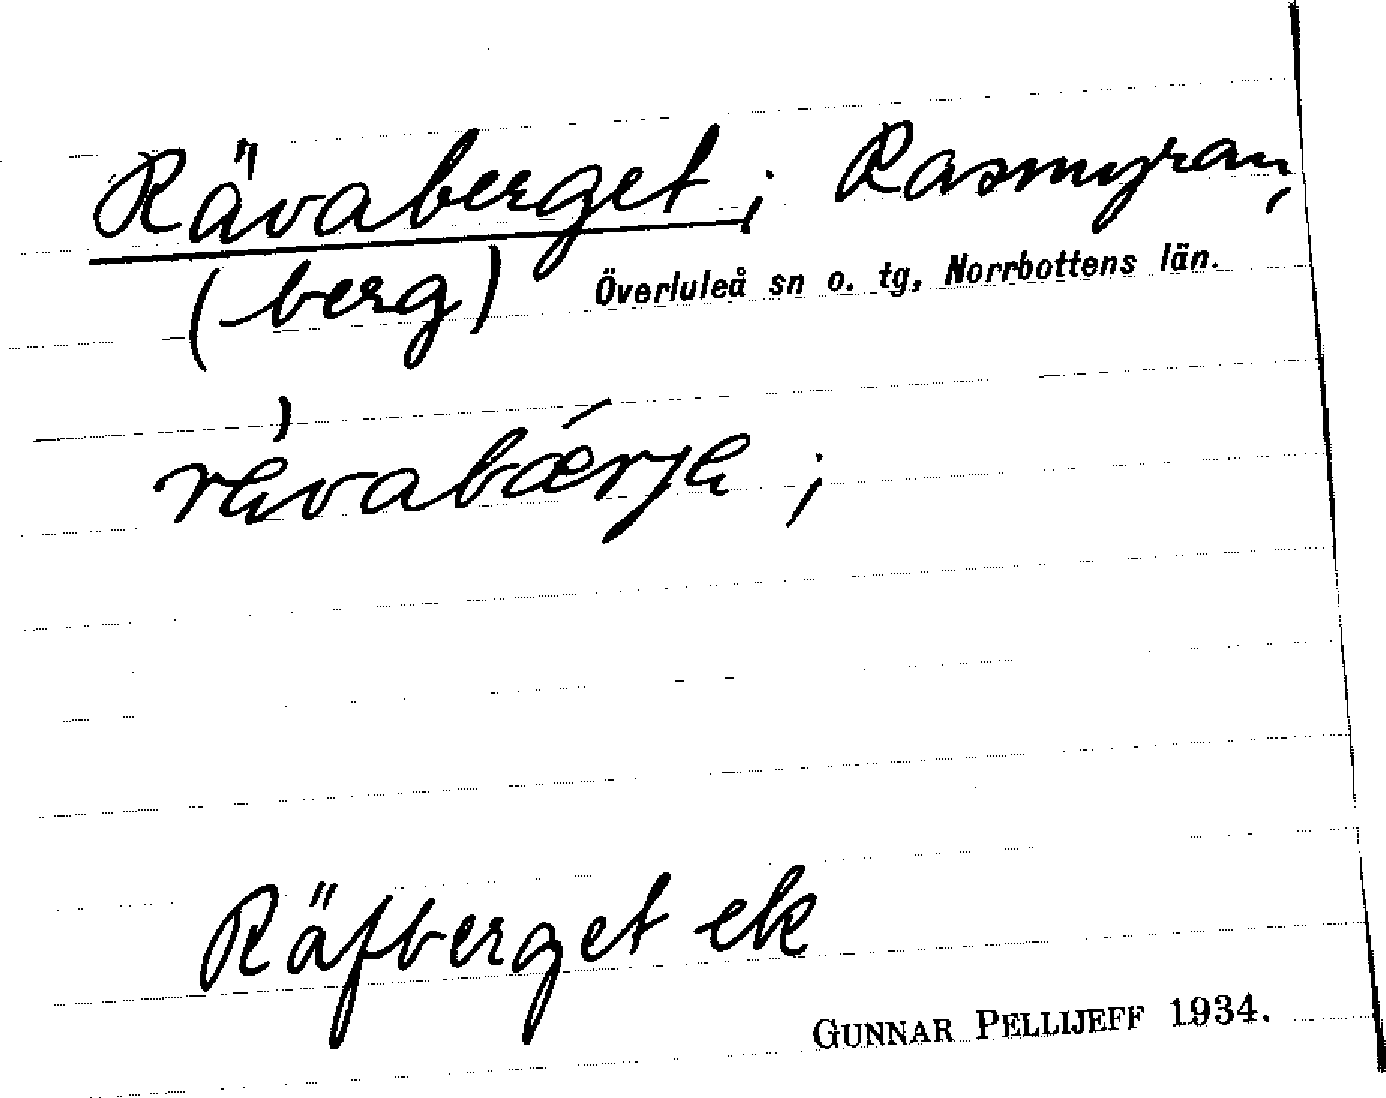 Rävaberget; Rasmyran,
(berg) Överluleå sn o. tg, Norrbottens län.
Räfberget ek
GUNNAR PELLIJEFF 1934.